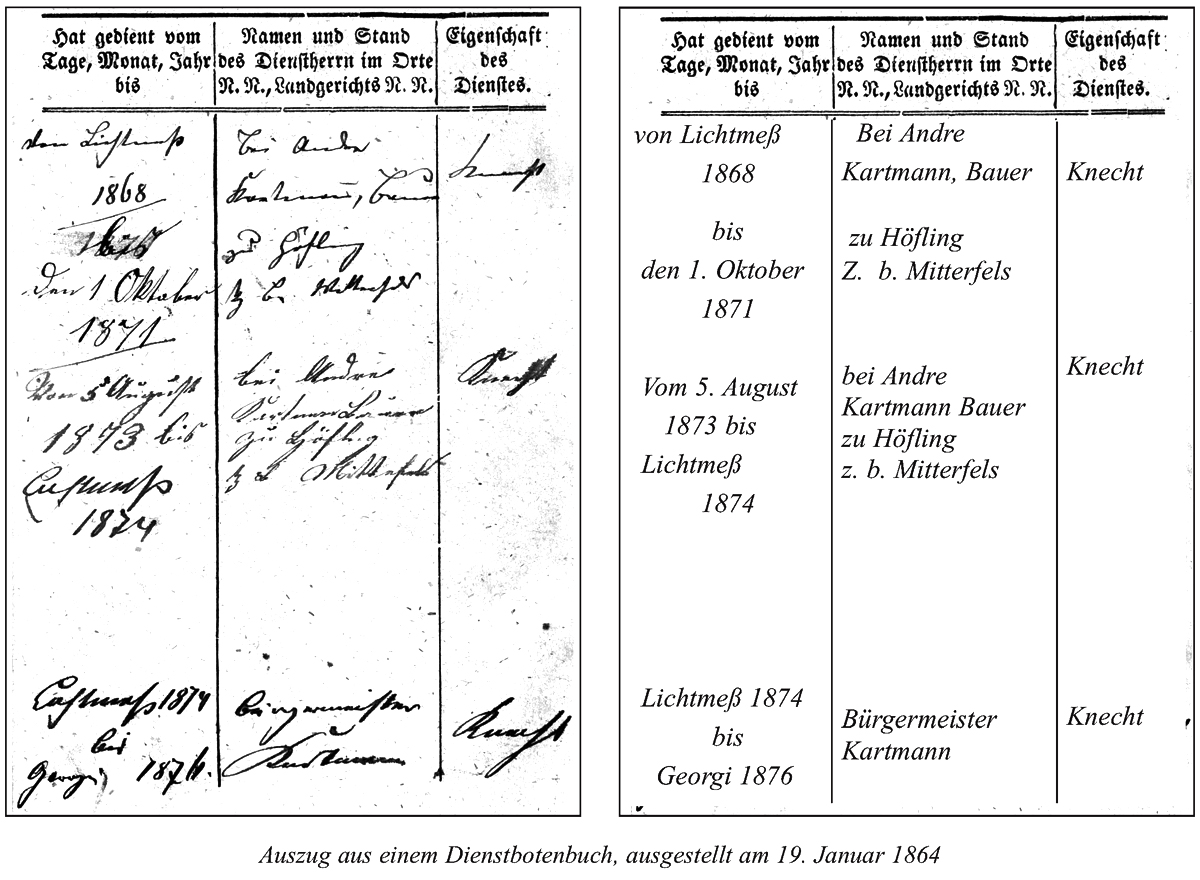 Hat gedient vom
Tage, Monat, Jahr
bis
Namen und Stand
des Dienstherrn im Orte
N. N., Landgerichts N. N.
Eigenschaft
des
Dienstes.
den Lichtmeß
1868
bis
den 1 Oktober
1871
Von 5 August
1873 bis
Lichtmeß
1874
Lichtmeß 1874
bis
Georgi 1876.
bei Andre
Kartmann, Bauer
zu Höfling
z. b. Mitterfels
bei Andre
Kartman Bauer
zu Höfling
z b Mitterfels
bürgermeister
Kartmann
Knecht
Knecht
Knecht
Hat gedient vom
Tage, Monat, Jahr
bis
Namen und Stand
des Dienstherrn im Orte
N. N., Landgerichts N. N.
Eigenschaft
des
Dienstes.
von Lichtmeß
1868
bis
den 1. Oktober
1871
Vom 5. August
1873 bis
Lichtmeß
1874
Lichtmeß 1874
bis
Georgi 1876
Bei Andre
Kartmann, Bauer
zu Höfling
Z. b. Mitterfels
bei Andre
Kartmann Bauer
zu Höfling
z. b. Mitterfels
Bürgermeister
Kartmann
Knecht
Knecht
Knecht
Auszug aus einem Dienstbotenbuch, ausgestellt am 19. Januar 1864